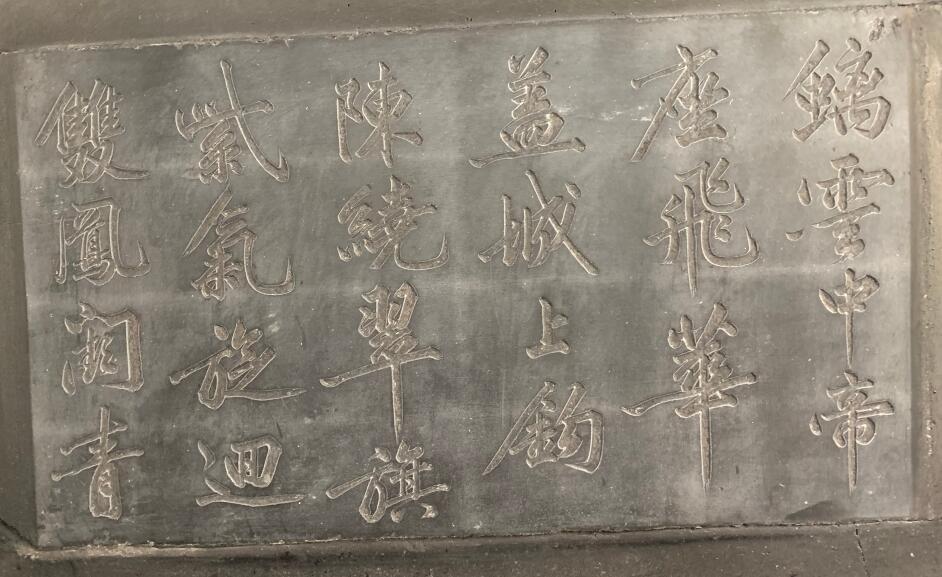 雲中帝
座飛華
蓋城上鈎
陳繞翠旗
紫氣旋迴
雙鳳闕青